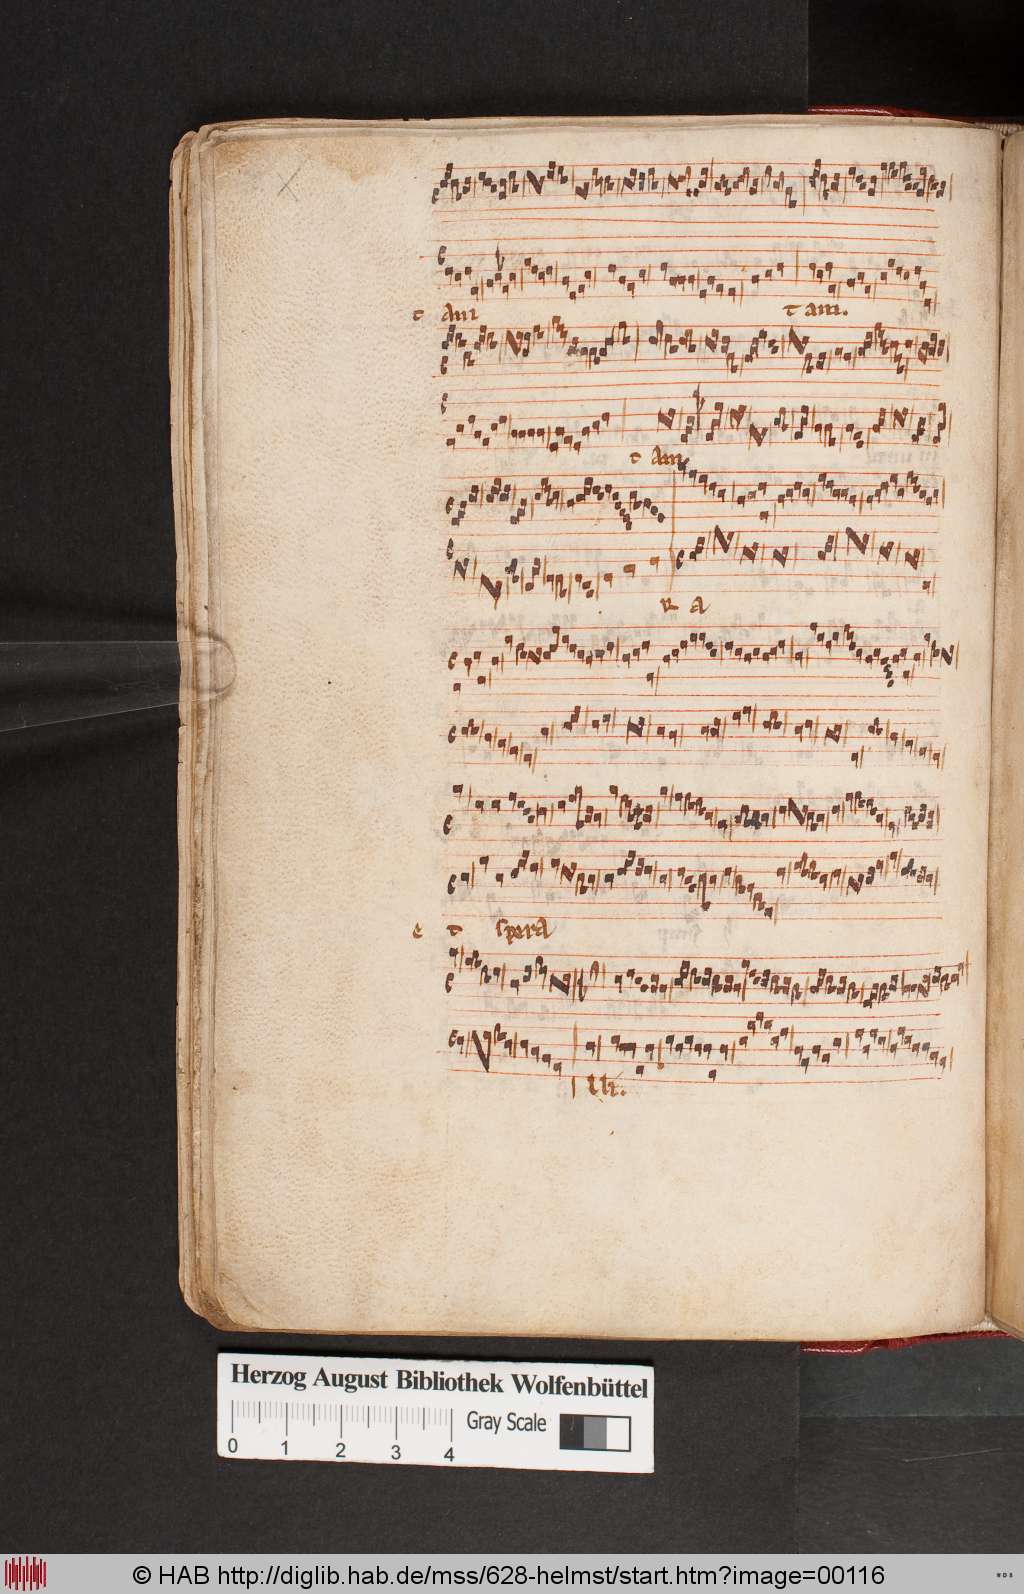 t am tam.
tam
R a
e t spera
lli.
Herzog August Bibliothek Wolfenbüttel
Gray Scale
0 1 2 3 4
© HAB http://diglib.hab.de/mss/628-helmst/start.htm?image=00116